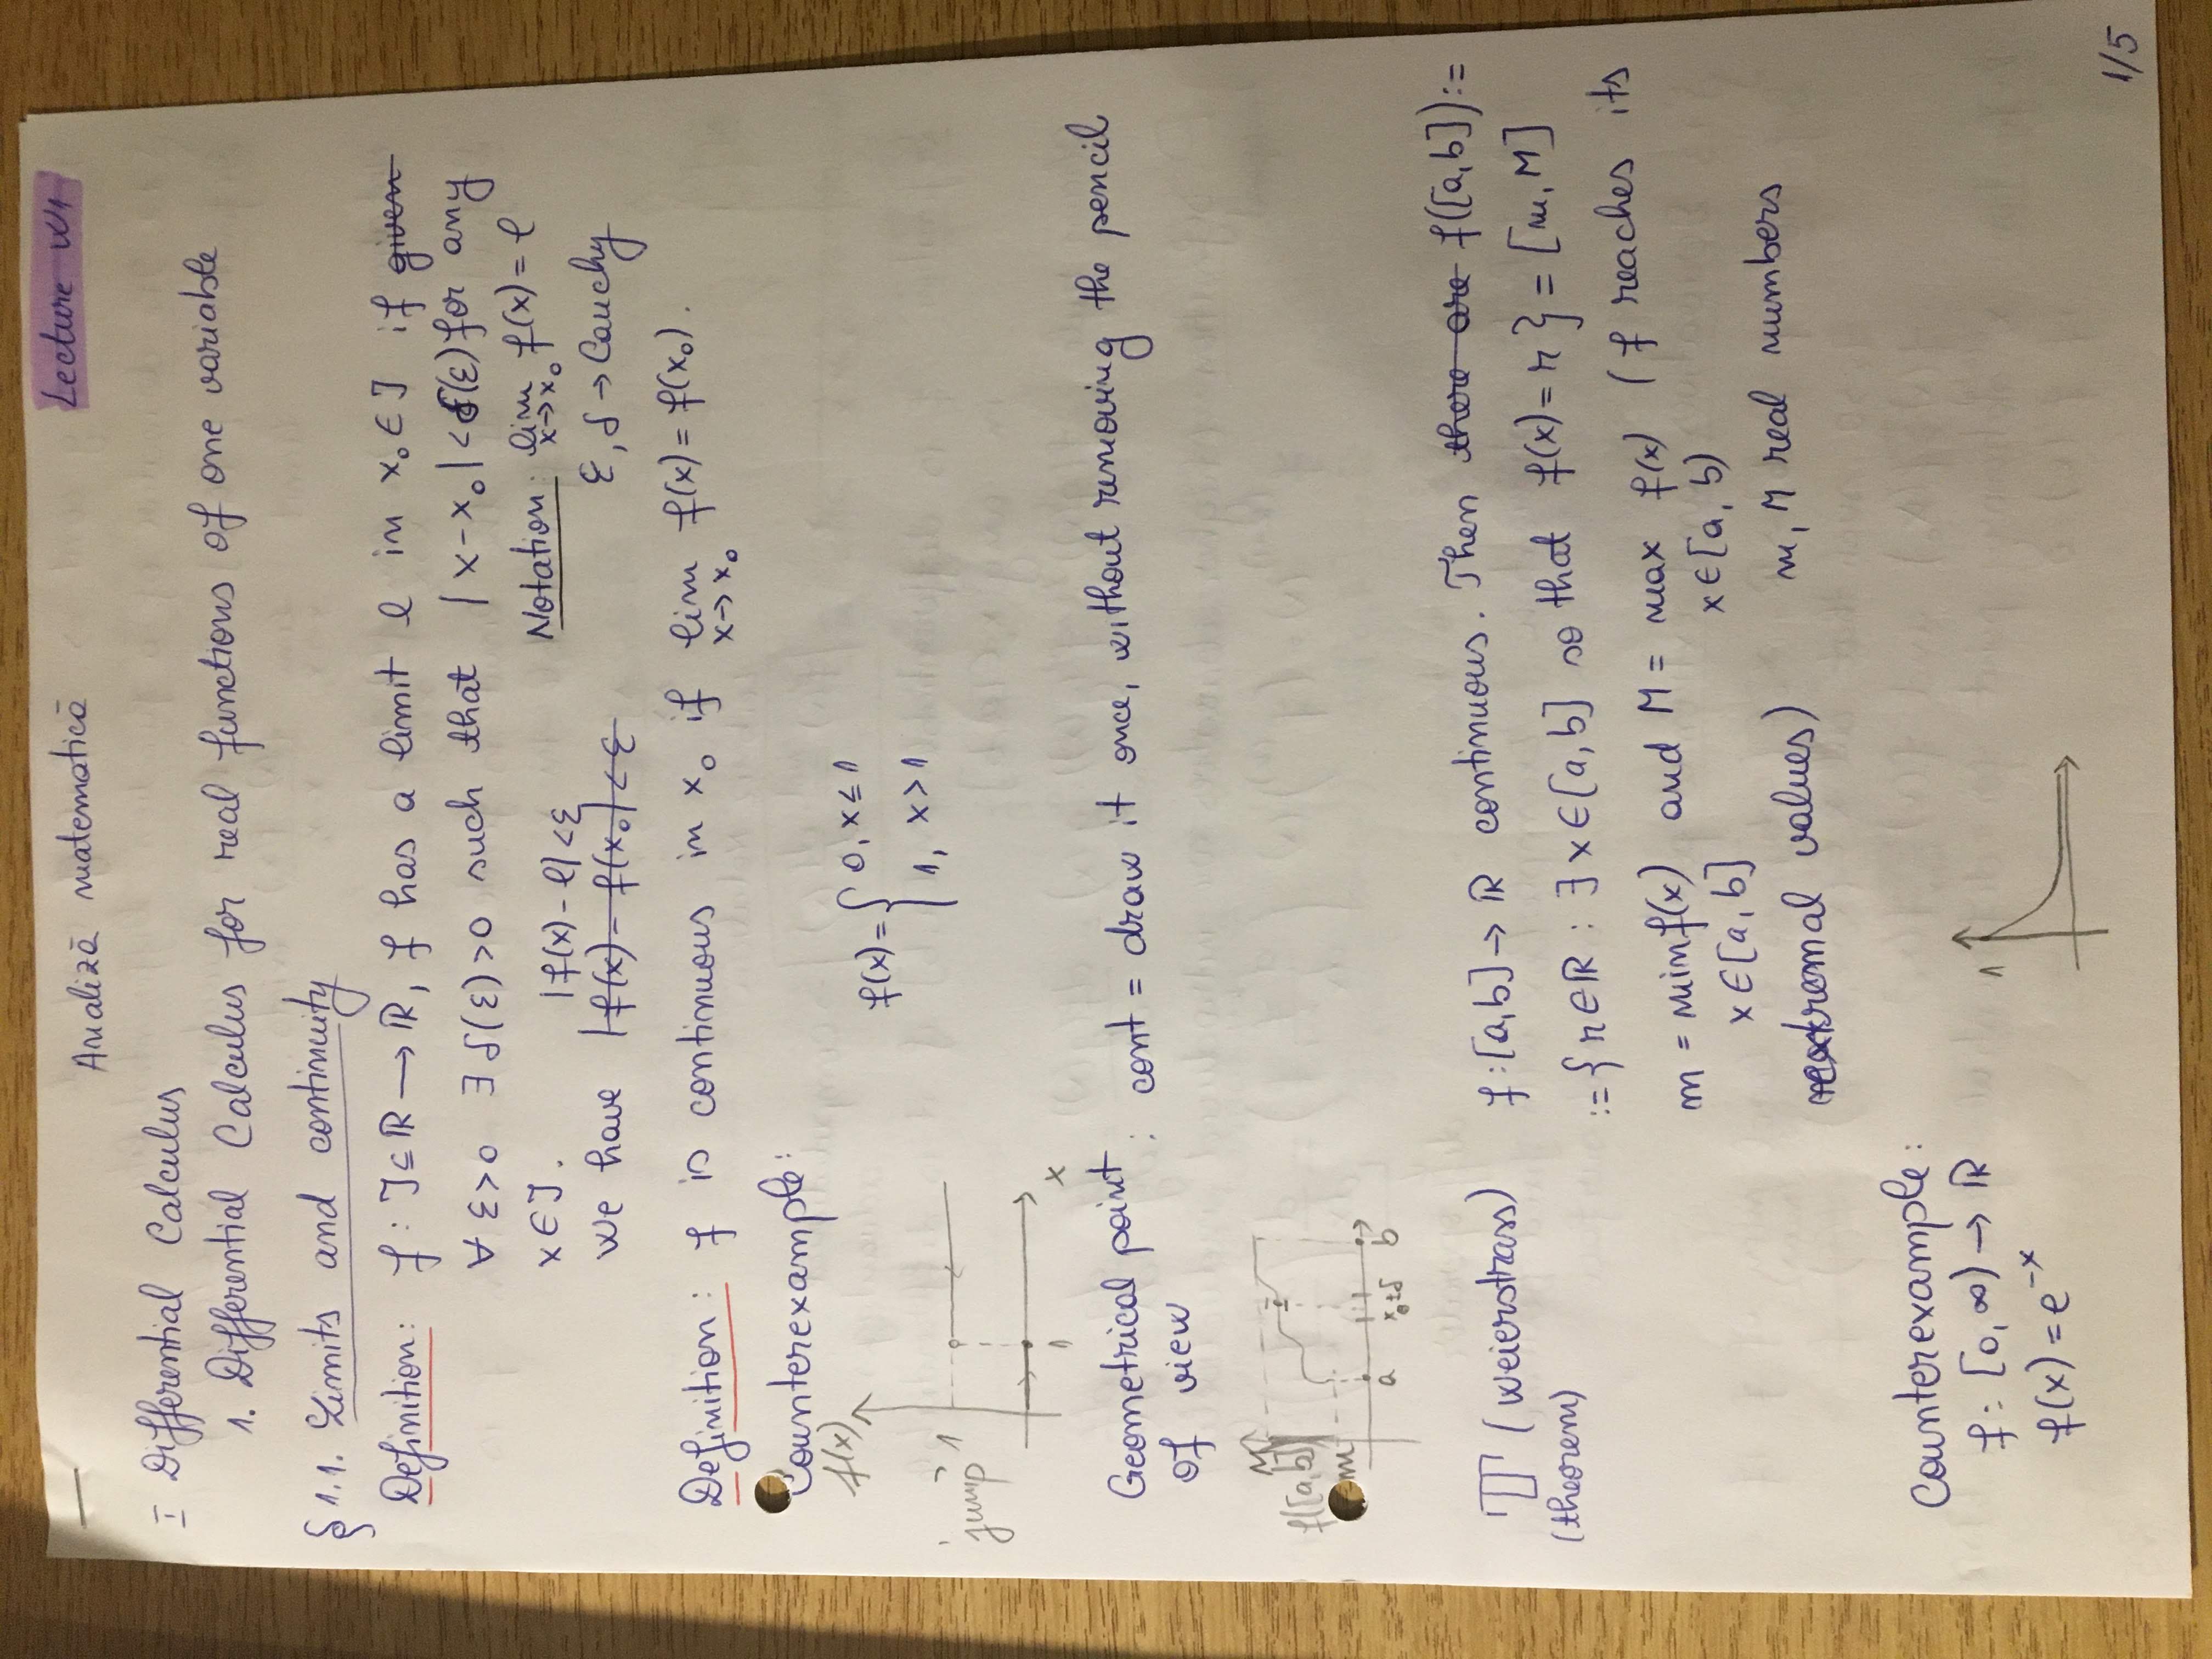 Lecture W1
Analiză matematică
I Differential Calculus
1. Differential Calculus for real functions of one variable
§ 1.1. Limits and continuity
Definition: f : J ⊆ ℝ → ℝ, f has a limit l in x₀ ∈ J if given
∀ ε>0 ∃ δ(ε)>0 such that |x-x₀| < δ(ε) for any
x ∈ J.
Notation: lim f(x) = l
x→x₀
|f(x) - l| < ε
We have |f(x) - f(x₀)| < ε
ε, δ → Cauchy
Definition: f is continuous in x₀ if lim f(x) = f(x₀).
x→x₀
Counterexample:
f(x)
f(x) = { 0, x ≤ 1
1, x > 1
"jump" 1
1
x
Geometrical point of view : cont = draw it once, without removing the pencil
M
f([a,b])
m
a x₀±δ b
T (Weierstrass) f : [a,b] → ℝ continuous. Then there are f([a,b]) :=
(theorem)
:= { r ∈ ℝ : ∃ x ∈ [a,b] so that f(x) = r } = [m, M]
m = min f(x) and M = max f(x) (f reaches its
x ∈ [a, b] x ∈ [a, b)
extremal values) m, M real numbers
Counterexample:
f : [0, ∞) → ℝ
f(x) = e⁻ˣ
1
1/5